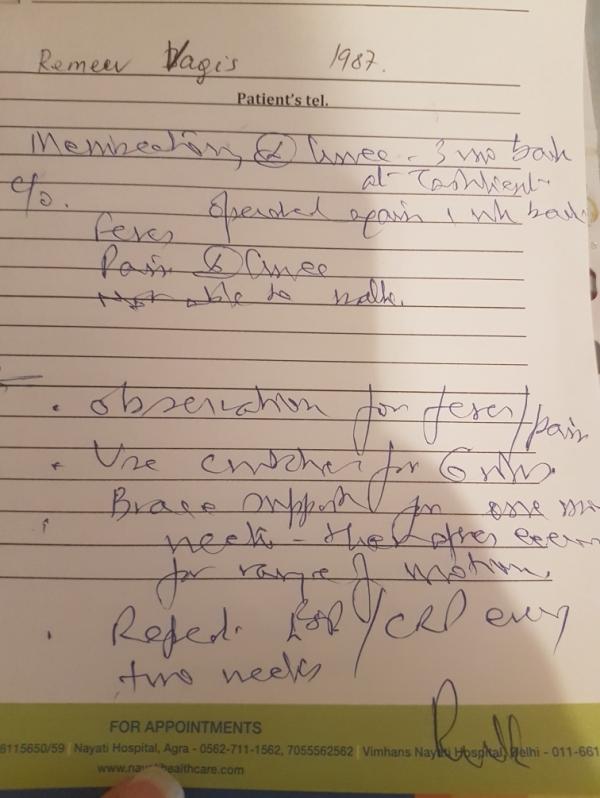 Remeev Vagis 1987.
Patient's tel.
Knee - 3 mo back
at Tashkent
c/o. Operated again 1 wk back
Fever
Pain Knee
able to walk.
• Observation for fever/pain
• Use crutches for 6 wks.
Brace support for one
week - exer
for range of motion.
• Repeat ESR/CRP every
two weeks
FOR APPOINTMENTS
6115650/59 | Nayati Hospital, Agra - 0562-711-1562, 7055562562 | Vimhans Nayati Hospital, Delhi - 011-661
www.nayatihealthcare.com